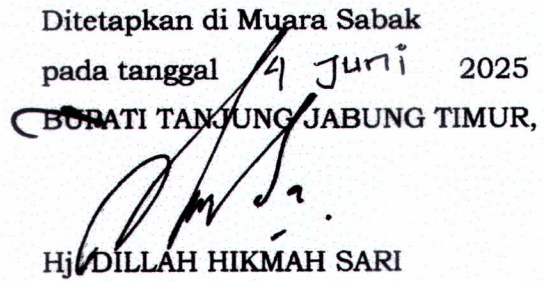 Ditetapkan di Muara Sabak
pada tanggal 4 Juni 2025
BUPATI TANJUNG JABUNG TIMUR,
Hj. DILLAH HIKMAH SARI